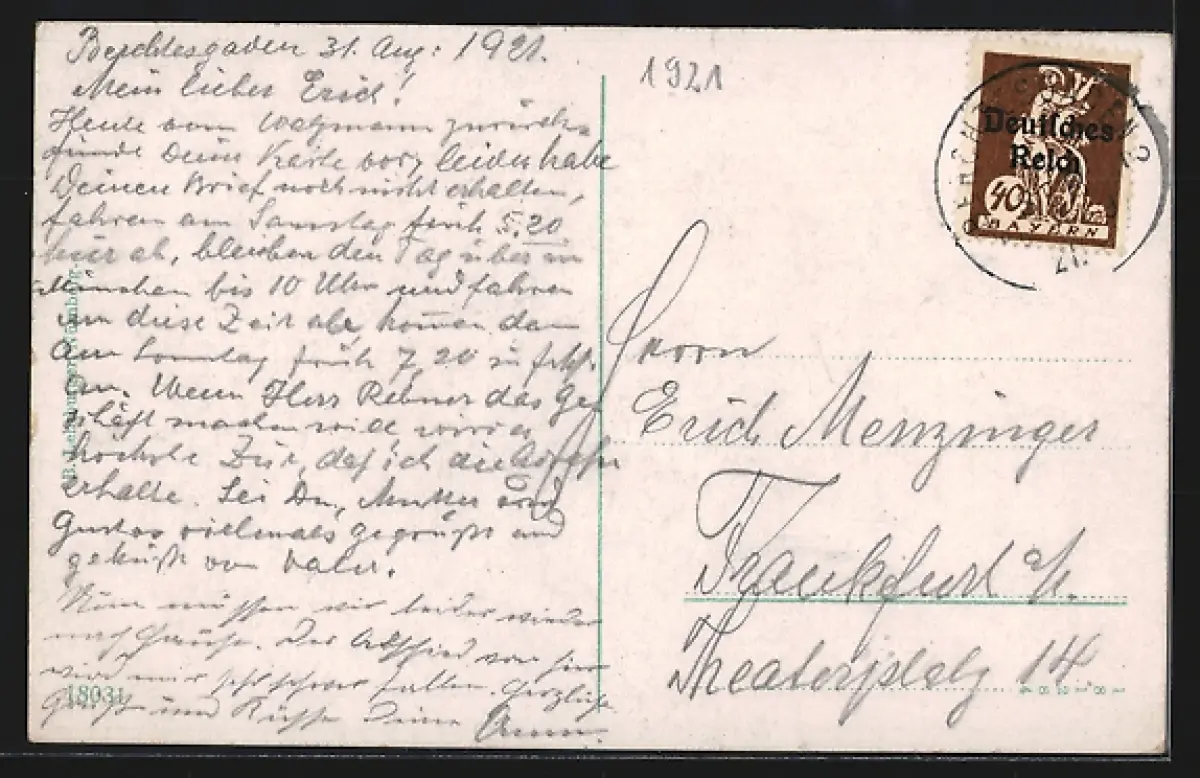 Berchtesgaden 31. Aug: 1921.
Mein lieber Erich!
Heute vom Watzmann zurück,
finde Deine Karte vor, leider habe
Deinen Brief noch nicht erhalten,
fahren am Samstag früh 5.20
hier ab, bleiben den Tag über in
München bis 10 Uhr und fahren
um diese Zeit ab, kommen dann
am Sonntag früh 7.20 in Frkft.
an. Wenn Herr Rebner das Ge-
schäft machen will, wäre es
höchste Zeit, daß ich die
erhalte. Sei Du, Mutter und
Gustav vielmals gegrüßt und
geküßt von Vater.
Nun müssen wir leider wieder
nach Hause. Der Abschied von hier
wird mir sehr schwer fallen. Herzliche
Grüße und Küsse Deine
18931
1921
Deutsches
Reich
40
BAYERN
Herrn
Erich Menzinger
Frankfurt a/M.
Theaterplatz 14